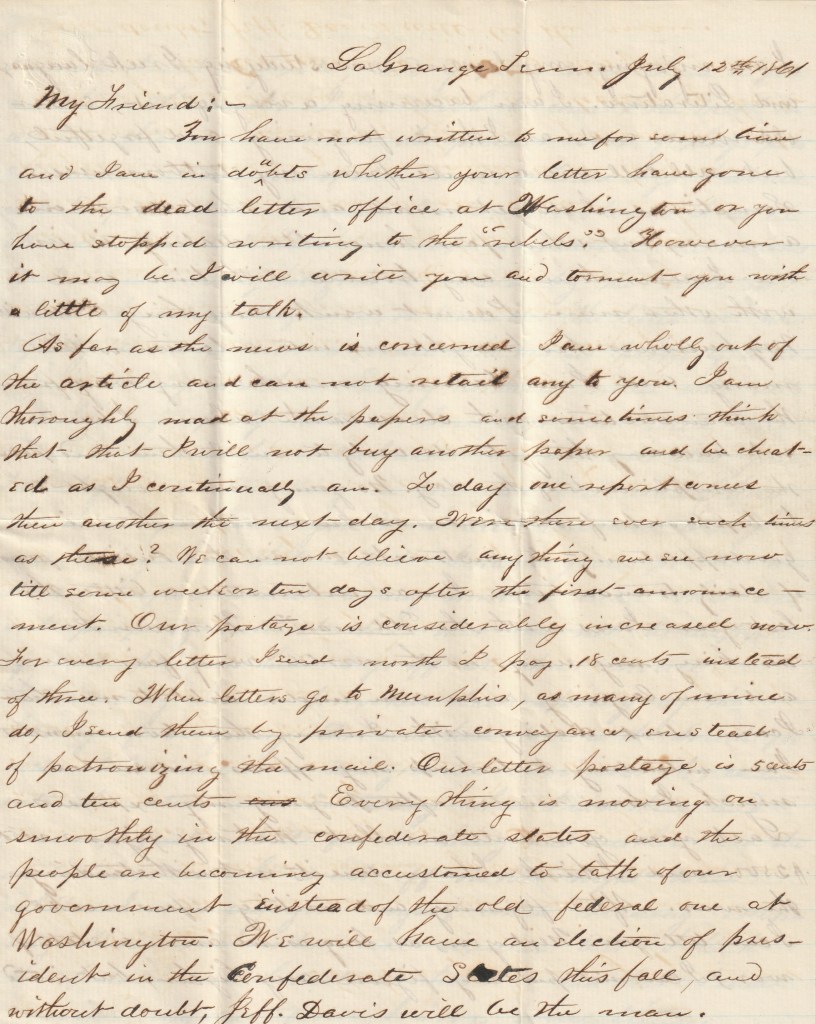 LaGrange Tenn. July 12th 1861
My Friend:-
You have not written to me for some time
and I am in doubts whether your letter have gone
to the dead letter office at Washington or you
have stopped writing to the "rebels." However
it may be I will write you and torment you with
a little of my talk.
As far as the news is concerned I am wholly out of
the article and can not retail any to you. I am
thoroughly mad at the papers and sometimes think
that that I will not buy another paper and be cheat-
ed as I continually am. To day one report comes
then another the next day. Were there ever such times
as these? We can not believe any thing we see now
till some week or ten days after the first announce-
ment. Our postage is considerably increased now.
For every letter I send north I pay .18 cents instead
of three. When letters go to Memphis, as many of mine
do, I send them by private conveyance, instead
of patronizing the mail. Our letter postage is 5 cents
and ten cents Every thing is moving on
smoothly in the confederate states and the
people are becoming accustomed to talk of our
government instead of the old federal one at
Washington. We will have an election of pres-
ident in the Confederate States this fall, and
without doubt, Jeff. Davis will be the man.